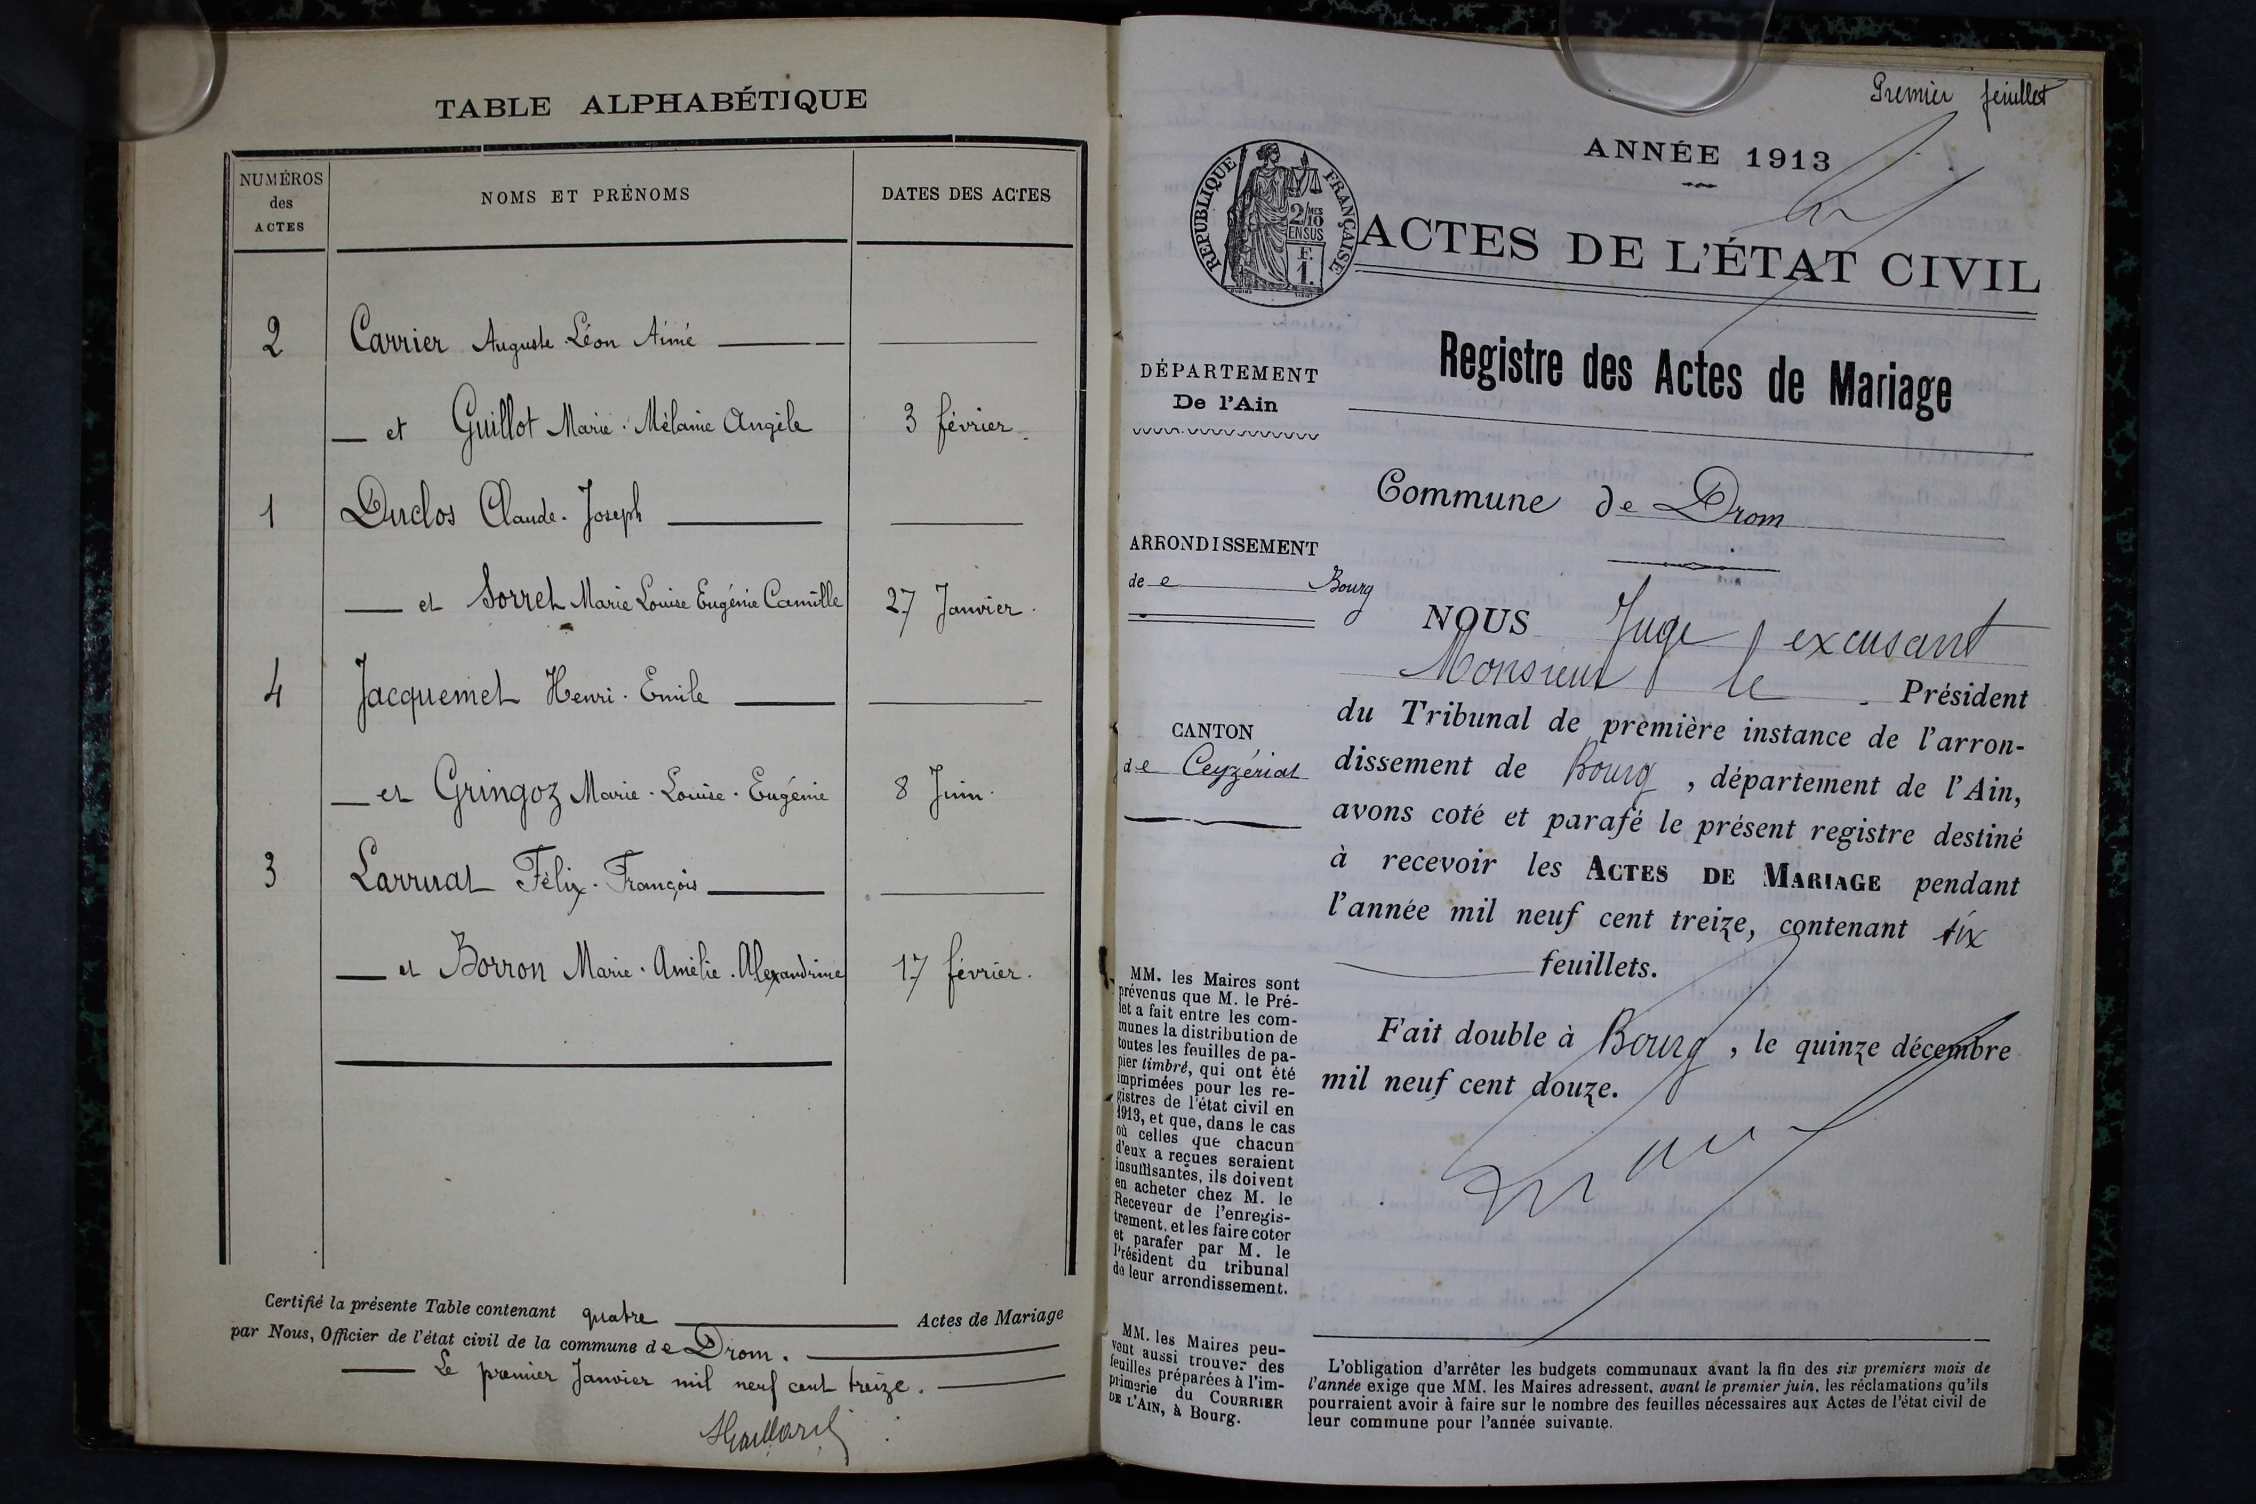 TABLE ALPHABÉTIQUE
NUMÉROS
des
ACTES
NOMS ET PRÉNOMS
DATES DES ACTES
2 Carrier Auguste Léon Aimé
et Guillot Marie Mélanie Angèle 3 février
1 Duclos Claude Joseph
et Sorret Marie Louise Eugénie Camille 27 Janvier
4 Jacquemet Henri Emile
et Gringoz Marie Louise Eugénie 8 Juin
3 Larruat Félix François
et Borron Marie Amélie Alexandrine 17 février
Certifié la présente Table contenant quatre Actes de Mariage
par Nous, Officier de l'état civil de la commune de Drom.
Le premier Janvier mil neuf cent treize.
Premier feuillet
ANNÉE 1913
RÉPUBLIQUE FRANÇAISE
2/10MES
EN SUS
F.
1.
ACTES DE L'ÉTAT CIVIL
Registre des Actes de Mariage
DÉPARTEMENT
De l'Ain
Commune de Drom
ARRONDISSEMENT
de e Bourg
CANTON
de Ceyzériat
NOUS Juge excusant
Monsieur le Président
du Tribunal de première instance de l'arron-
dissement de Bourg, département de l'Ain,
avons coté et parafé le présent registre destiné
à recevoir les ACTES DE MARIAGE pendant
l'année mil neuf cent treize, contenant six
feuillets.
Fait double à Bourg, le quinze décembre
mil neuf cent douze.
MM. les Maires sont
prévenus que M. le Pré-
fet a fait entre les com-
munes la distribution de
toutes les feuilles de pa-
pier timbré, qui ont été
imprimées pour les re-
gistres de l'état civil en
1913, et que, dans le cas
où celles que chacun
d'eux a reçues seraient
insuffisantes, ils doivent
en acheter chez M. le
Receveur de l'enregis-
trement, et les faire coter
et parafer par M. le
Président du tribunal
de leur arrondissement.
MM. les Maires peu-
vent aussi trouver des
feuilles préparées à l'im-
primerie du COURRIER
DE L'AIN, à Bourg.
L'obligation d'arrêter les budgets communaux avant la fin des six premiers mois de
l'année exige que MM. les Maires adressent, avant le premier juin, les réclamations qu'ils
pourraient avoir à faire sur le nombre des feuilles nécessaires aux Actes de l'état civil de
leur commune pour l'année suivante.